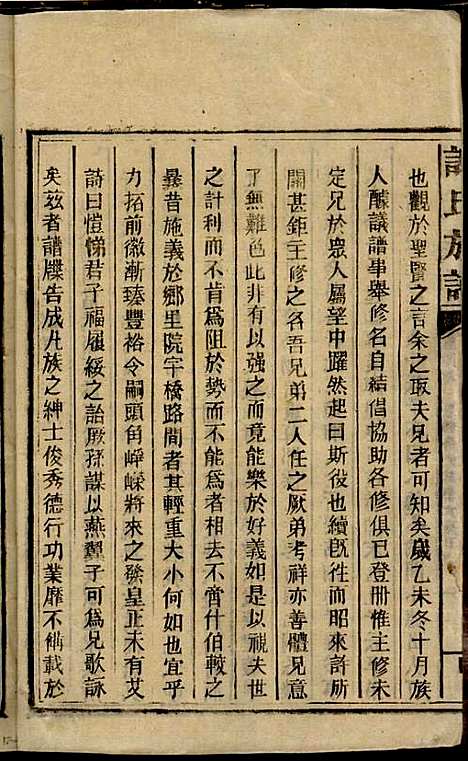 氏族譜
也觀於聖賢之言余之取夫兄者可知矣歲乙未冬十月族
人醵議譜事舉修名自結倡協助各修俱已登冊惟主修未
定兄於眾人屬望中躍然起曰斯役也續既往而昭來許所
關甚鉅主修之名吾兄弟二人任之厥弟考祥亦善體兄意
了無難色此非有以強之而竟能樂於好義如是以視夫世
之計利而不肯為阻於勢而不能為者相去不啻什伯較之
曩昔施義於鄉里院宇橋路間者其輕重大小何如也宜乎
力拓前徽漸臻豐裕令嗣頭角崢嶸將來之發皇正未有艾
詩曰愷悌君子福履綏之詒厥孫謀以燕翼子可為兄歌詠
矣茲者譜牒告成凡族之紳士俊秀德行功業靡不備載於